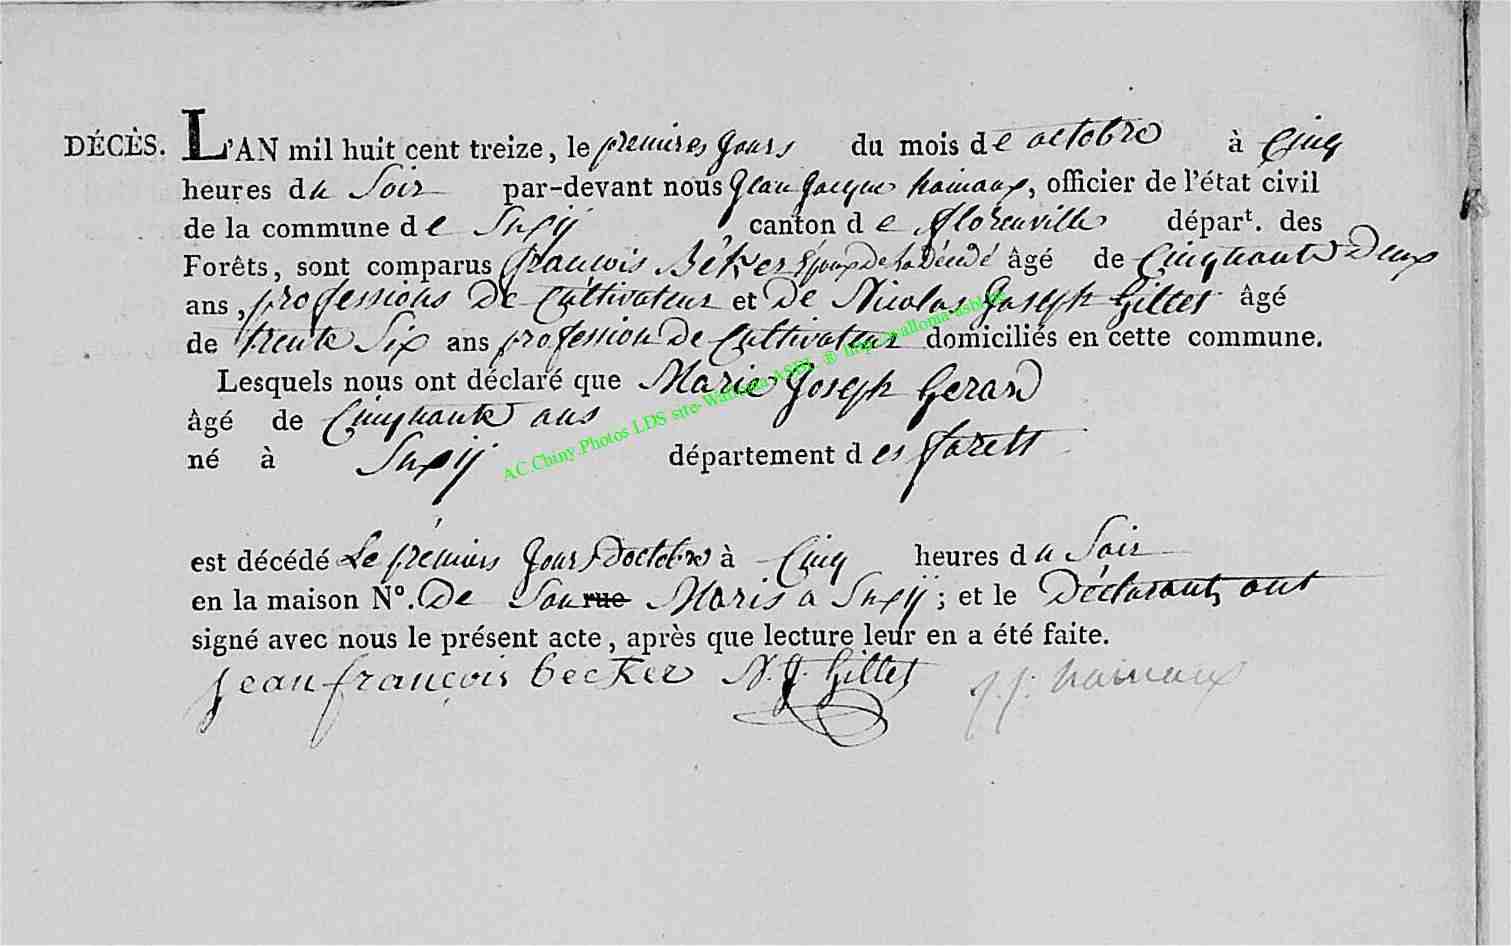 DÉCÈS. L'AN mil huit cent treize, le premires Jours du mois de octobre à Cinq
heures du Soir par-devant nous Jean Jacque hainaux, officier de l'état civil
de la commune de Suxij canton de florenville départ. des
Forêts, sont comparus francois Béker Époux De la Décédé âgé de Cinquante Deux
ans, professions De Cultivateur et De Nicolas Joseph Gillet âgé
de trente Six ans profession De Cultivateur domiciliés en cette commune.
Lesquels nous ont déclaré que Marie Joseph Gerard
âgé de Cinquante ans
né à Suxij département des foretts
est décédé Le premiers Jours Doctobre à Cinq heures du Soir
en la maison N°. De Son rue Maris a Suxij; et le Déclarants ont
signé avec nous le présent acte, après que lecture leur en a été faite.
Jean françois becker N. J. Gillet J. J. hainaux
AC.Chiny.Photos LDS site-Wallonia ASBL ®